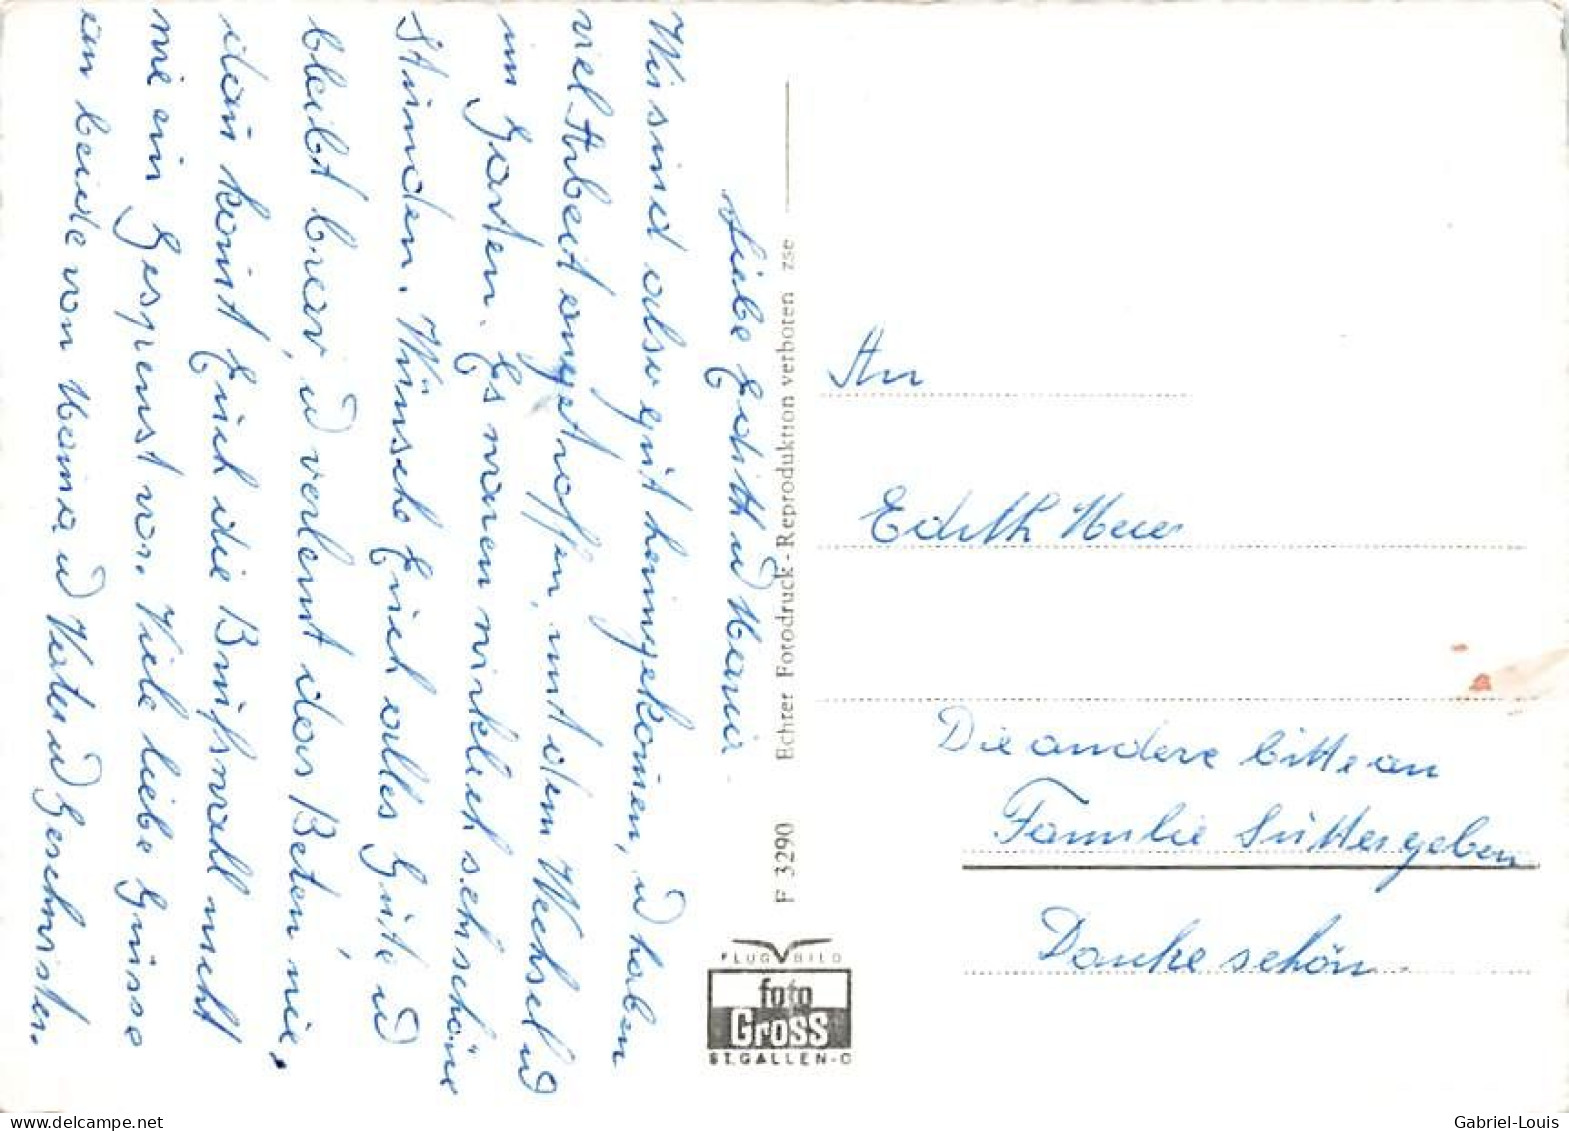 Liebe Edith u Maria
Wir sind also gut heimgekomen, u haben
viel Arbeit angetroffen, mit dem Wechsel u
im Garten. Es waren wirklich sehr schöne
Stunden. Wünsche Euch alles Gute u
bleibt brav, u verlernt das Beten nie,
dan komt Euch die Berufswahl nicht
wie ein Gespenst vor. Viele liebe Grüsse
an beide von Mama u Vater u Geschwister.
F 3290 Echter Fotodruck - Reproduktion verboten zse
FLUG BILD
foto
Gross
ST. GALLEN-O
An
Edith
Die andere bitte an
Familie Sutter geben
Danke schön.
delcampe.net
Gabriel-Louis